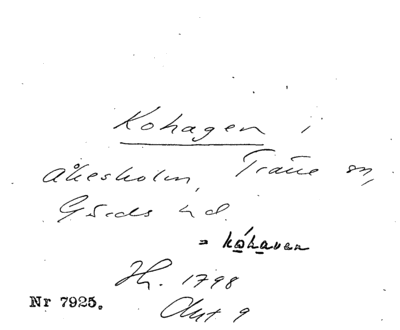 Kohagen i
Åkesholm, Träne sn,
Gärds hd.
= kóhaven
Hr. 1798
Nr 7925. Akt. 9